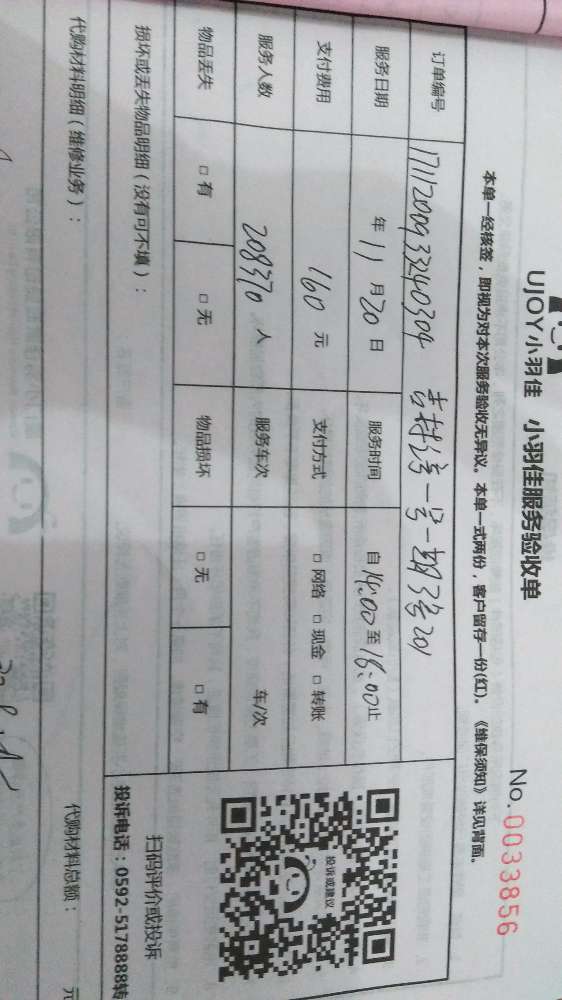 UJOY小羽佳 小羽佳服务验收单
No.0033856
本单一经核签，即视为对本次服务验收无异议。本单一式两份，客户留存一份(红)。《维保须知》详见背面。
订单编号 17112000933240304
服务日期 年 11 月 20 日 服务时间 自 14:00 至 16:00 止
支付费用 160 元 支付方式 □ 网络 □ 现金 □ 转账
服务人数 208370 人 服务车次 车/次
物品丢失 □ 有 □ 无 物品损坏 □ 无 □ 有
投诉或建议
扫码评价或投诉
投诉电话：0592-5178888转
损坏或丢失物品明细（没有可不填）：
代购材料明细（维修业务）： 代购材料总额： 元